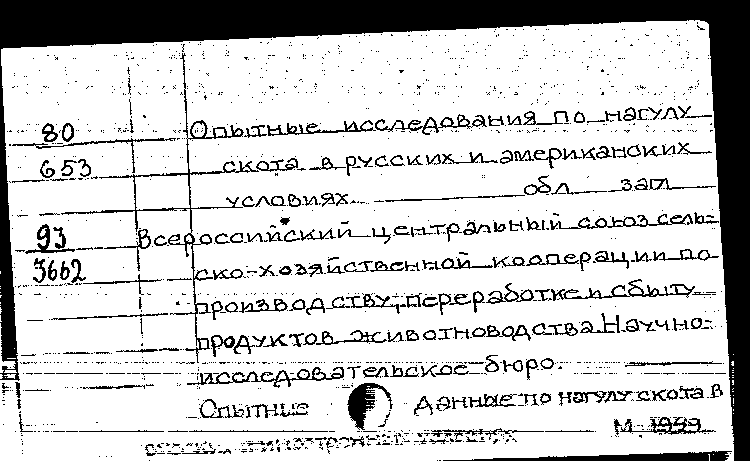 80 Опытные исследования по нагулу
653 скота в русских и американских
условиях. обл загл
93 Всероссийский центральный союз сель=
3662 ско-хозяйственной кооперации по
производству, переработке и сбыту
продуктов животноводства. Научно-
исследовательское бюро.
Опытные данные по нагулу скота в
М.